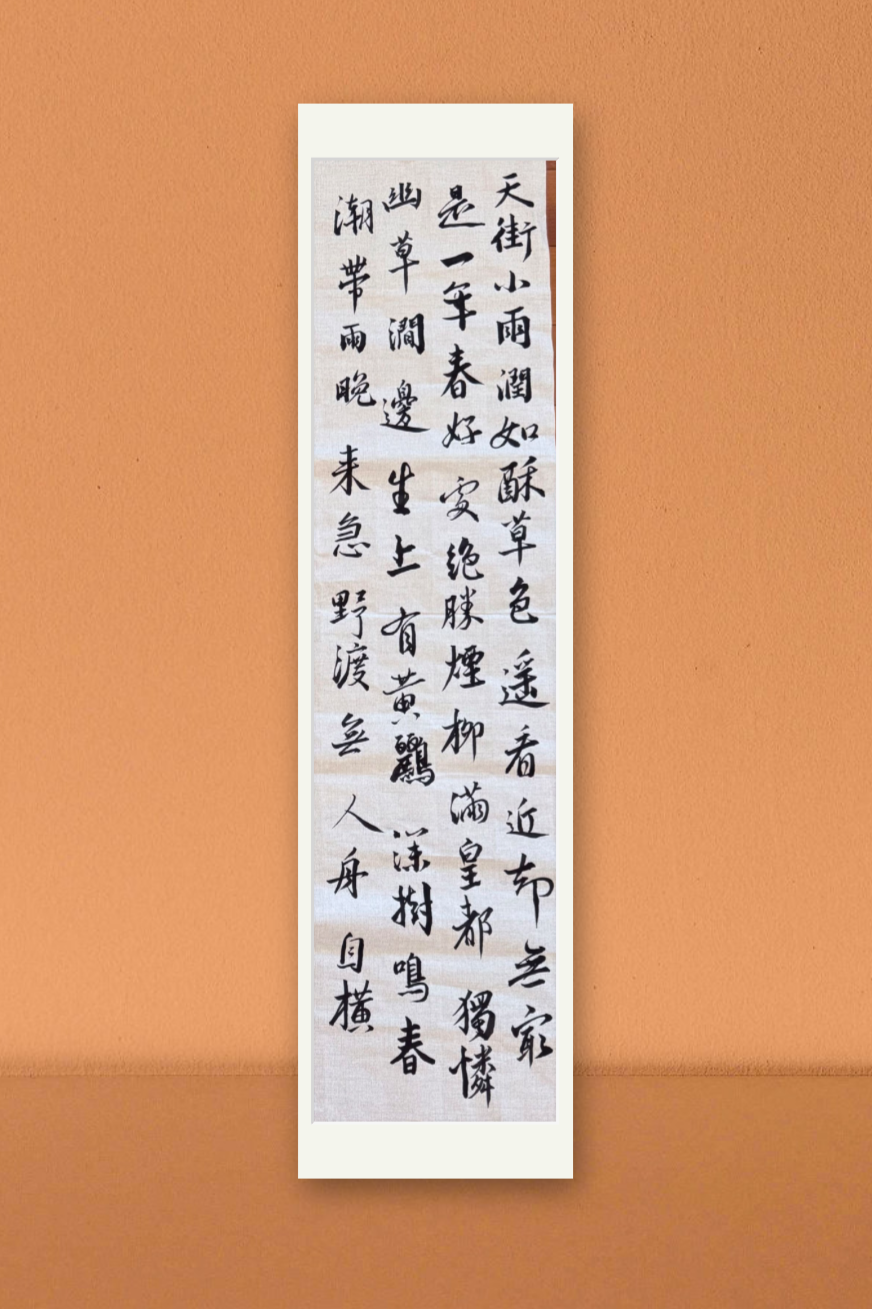 天街小雨潤如酥草色遥看近却無最
是一年春好處絶勝煙柳滿皇都獨憐
幽草澗邊生上有黄鸝深樹鳴春
潮帶雨晚来急野渡無人舟自橫